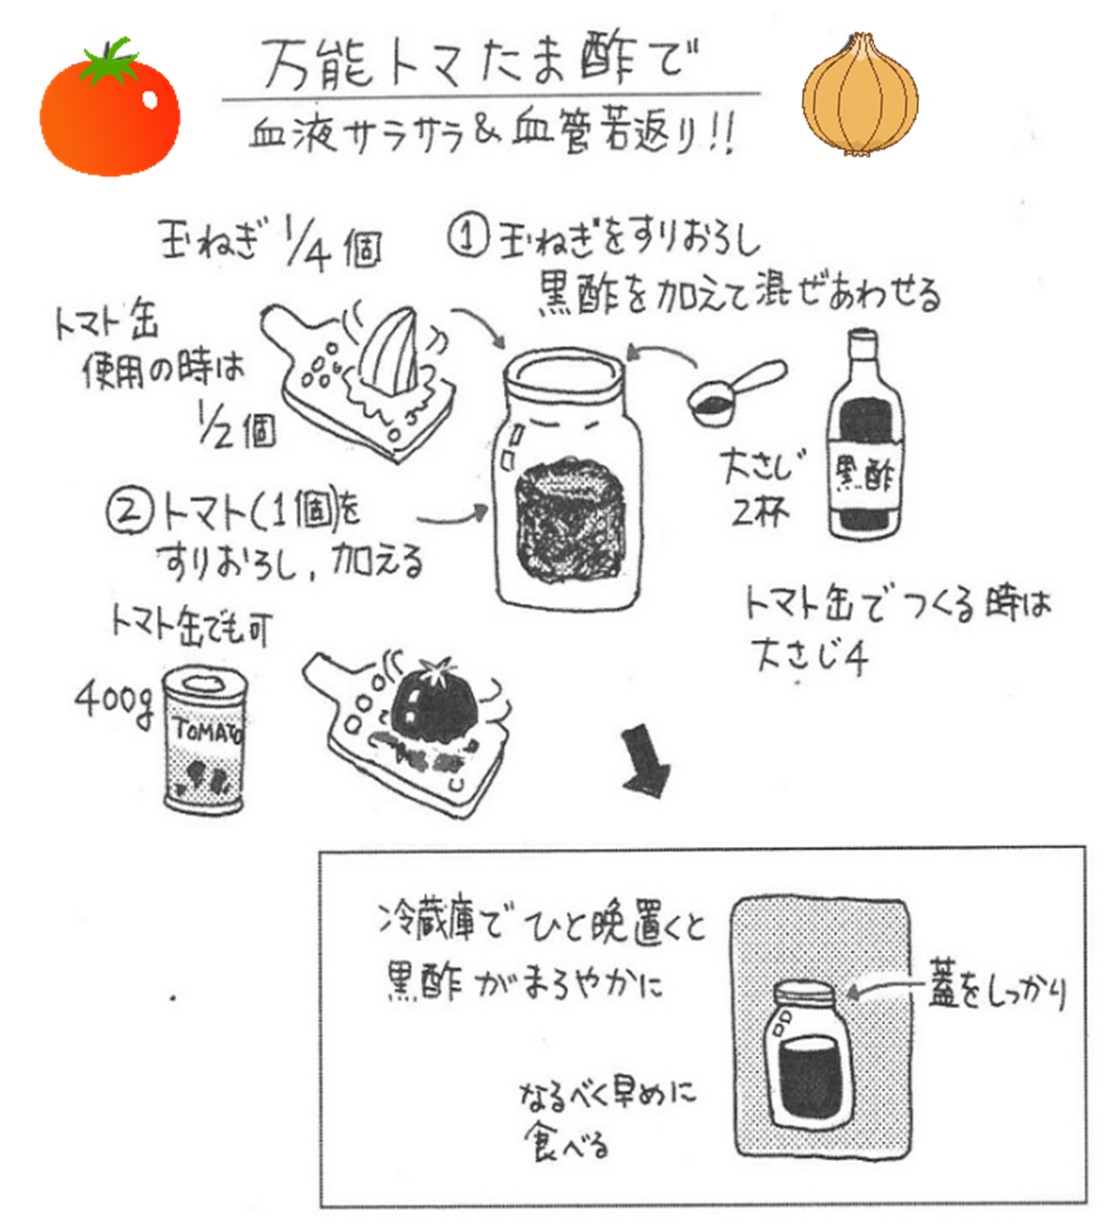 万能トマたま酢で
血液サラサラ&血管若返り!!
玉ねぎ 1/4 個
① 玉ねぎをすりおろし
黒酢を加えて混ぜあわせる
トマト缶
使用の時は
1/2 個
大さじ
2杯
黒酢
② トマト(1個)を
すりおろし、加える
トマト缶でつくる時は
大さじ4
トマト缶でも可
400g
TOMATO
冷蔵庫でひと晩置くと
黒酢がまろやかに
蓋をしっかり
なるべく早めに
食べる